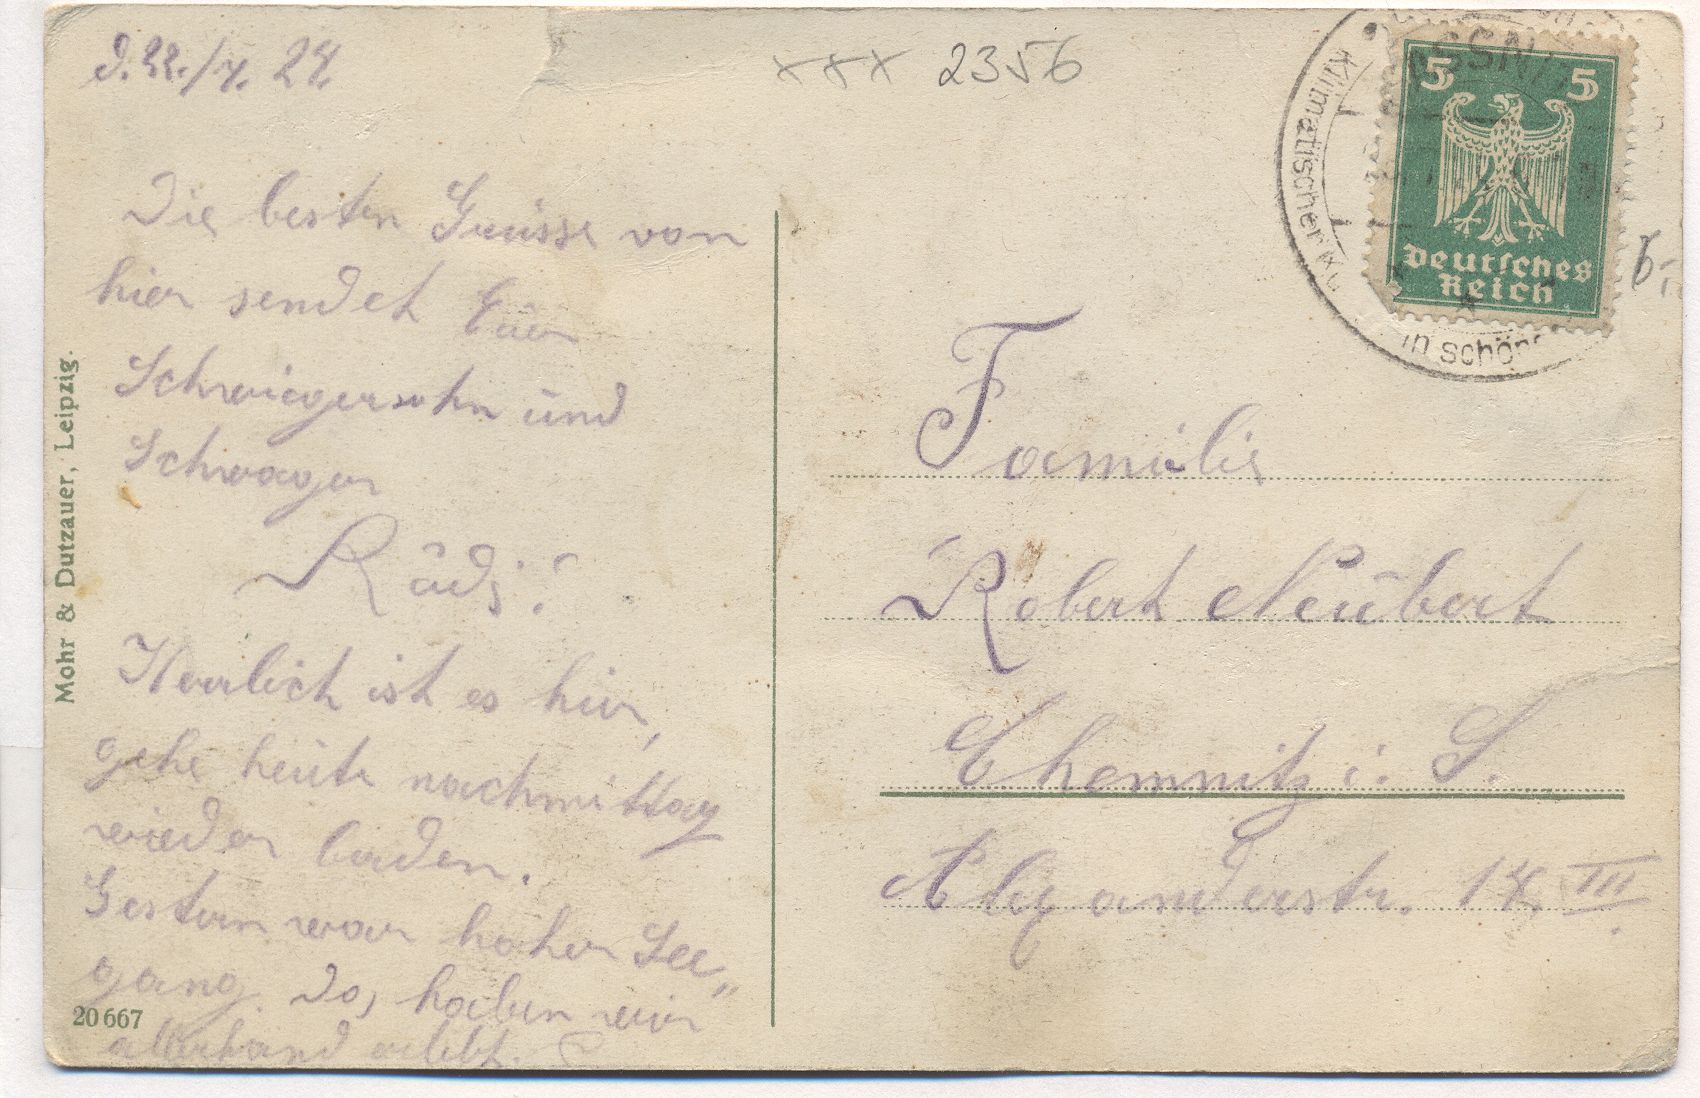 d. 22./7. 24.
xxx 2356
Die besten Grüsse von
hier sendet Euer
Schwiegersohn und
Schwager
Rudi!
Herrlich ist es hier,
gehe heute nachmittag
wieder baden.
Gestern war hoher See„
gang. Da, haben wir
allerhand erlebt.
Mohr & Dutzauer, Leipzig.
20667
5 5
Deutsches
Reich
SSNI
Klimatischer
in schön
Familie
Robert Neubert
Chemnitz i. S.
Alexanderstr. 14. III